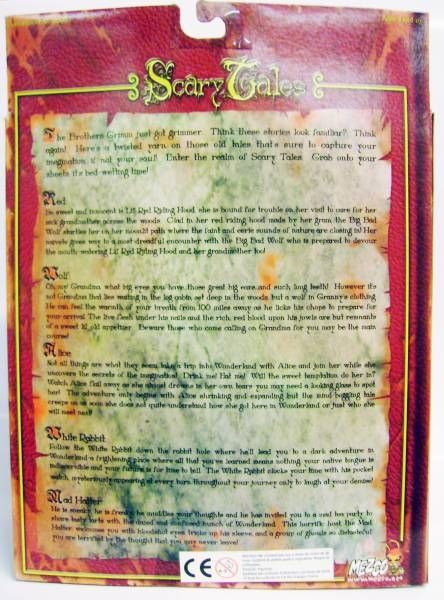 Scary Tales
The Brothers Grimm just got grimmer. Think these stories look familiar? Think
again! Here's a twisted yarn on those old tales that's sure to capture your
imagination, if not your soul! Enter the realm of Scary Tales. Grab onto your
sheets it's bed-wetting time!
Red
So sweet and innocent is Lil' Red Riding Hood, she is bound for trouble on her visit to care for her
sick grandmother across the woods. Clad in her red riding hood made by her gram, the Big Bad
Wolf startles her on her path where the faint and eerie sounds of nature are closing in! Her
naivete gives way to a most dreadful encounter with the Big Bad Wolf who is prepared to devour
the mouth watering Lil' Red Riding Hood and her grandmother too!
Wolf
Oh my Grandma, what big eyes you have, those great big ears and such long teeth! However it's
not Grandma that lies waiting in the log cabin, set deep in the woods, but a wolf in Granny's clothing.
He can feel the warmth of your breath from 100 miles away as he licks his chops to prepare for
your arrival. The flesh under his nails and the rich, red blood upon his jowls are but remnants
of a sweet lil' old appetizer. Beware those who come calling on Grandma for you may be the main
course!
Alice
Not all things are what they seem, take a trip into Wonderland with Alice and join her while she
uncovers the secrets of the imagination! Drink me! Eat me! Will the sweet temptation do her in?
Watch Alice flail away as she almost drowns in her own tears you may need a looking glass to spot
her! The adventure only begins with Alice shrinking and expanding but the mind boggling tale
creeps as soon she does not quite understand how she got here in Wonderland or just who she
will meet next!
White Rabbit
Follow the White Rabbit down the rabbit hole where he'll lead you to a dark adventure in
Wonderland a frightening place where all that you've learned means nothing, your native tongue is
indecipherable and your future is for time to tell. The White Rabbit clicks your time with his pocket
watch, mysteriously appearing at every turn throughout your journey only to laugh at your demise!
Mad Hatter
He is sneaky, he is freaky, he muddles your thoughts and he has invited you to a mad tea party to
share tasty tarts with the dazed and confused bunch of Wonderland. This horrific host the Mad
Hatter welcomes you with bloodshot eyes, tricks up his sleeve, and a group of ghouls so distasteful
you are horrified by the thought that you may never leave!
CE
MEZCO
www.mezco.net